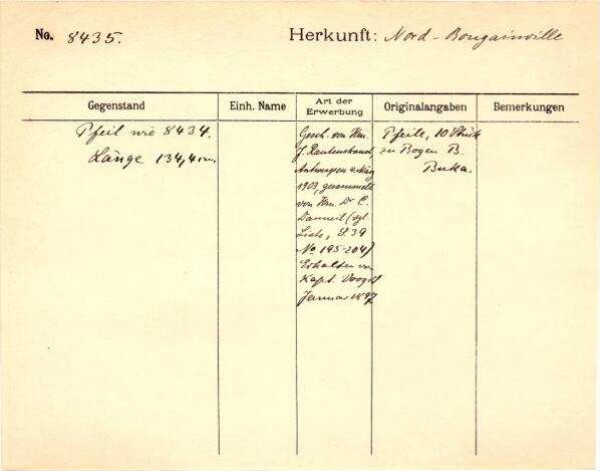 No. 8435.
Herkunft: Nord-Bougainville
Gegenstand
Einh. Name
Art der Erwerbung
Originalangaben
Bemerkungen
Pfeil wie 8434.
Länge 134,4 cm.
Gesch. von Hrn.
J. Rautenstrauch,
Antwerpen
1903, gesammelt
von Hrn. Dr C.
Danneil (vgl.
Liste, S. 39
No 195-204)
Erhalten von
Kapt. Voogdt
Januar 1897
Pfeile, 10 Stück
zu Bogen B.
Buka.